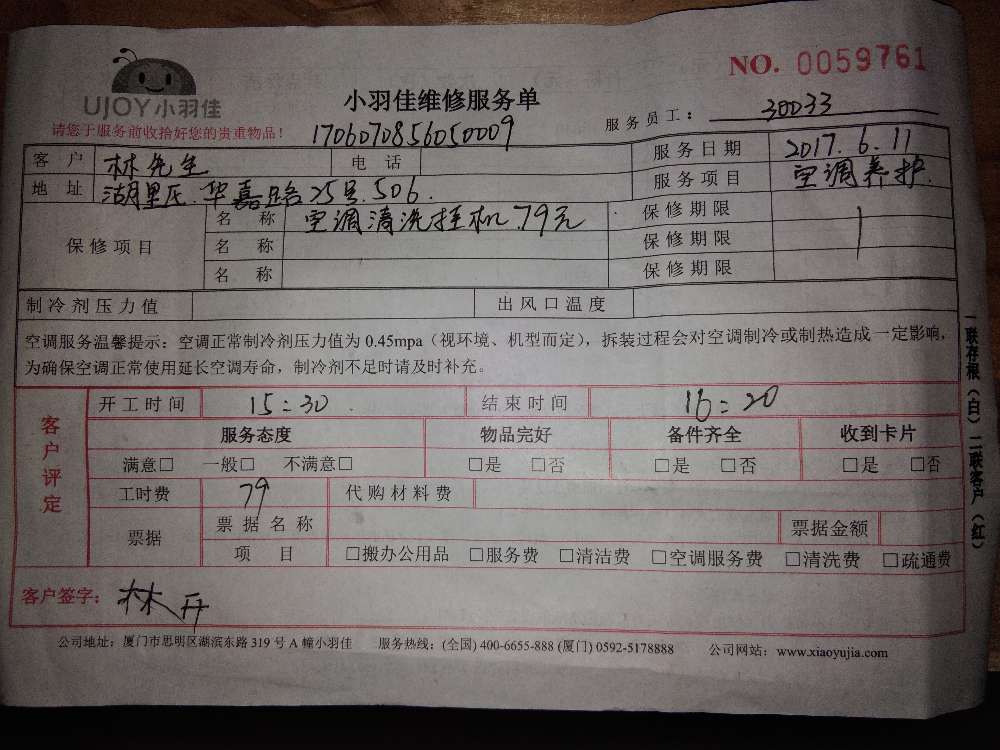 NO. 0059761
UJOY小羽佳
小羽佳维修服务单
服务员工： 30033
请您于服务前收拾好您的贵重物品！ 1706070856050009
客 户 林先生 电 话 服务日期 2017.6.11
地 址 湖里区.华嘉路25号.506. 服务项目 空调养护.
保修项目 名 称 空调清洗挂机.79元 保修期限
名 称 保修期限
名 称 保修期限
制冷剂压力值 出风口温度
空调服务温馨提示：空调正常制冷剂压力值为 0.45mpa（视环境、机型而定），拆装过程会对空调制冷或制热造成一定影响，
为确保空调正常使用延长空调寿命，制冷剂不足时请及时补充。
客户评定
开工时间 15:30. 结束时间 16:20
服务态度 物品完好 备件齐全 收到卡片
满意□ 一般□ 不满意□ □是 □否 □是 □否 □是 □否
工时费 79 代购材料费
票据 票据名称 票据金额
项 目 □搬办公用品 □服务费 □清洁费 □空调服务费 □清洗费 □疏通费
客户签字：林开
公司地址：厦门市思明区湖滨东路 319 号 A 幢小羽佳 服务热线：(全国) 400-6655-888 (厦门) 0592-5178888 公司网站：www.xiaoyujia.com
一联存根（白）二联客户（红）